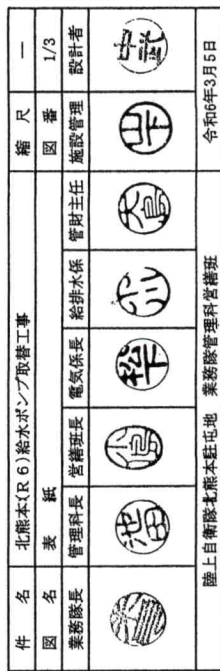 件 名 北熊本(R6)給水ポンプ取替工事 縮 尺 —
図 名 表 紙 図 番 1/3
業務隊長 管理科長 営繕班長 電気係長 給排水係 管財主任 施設管理 設計者
池田 大島 山下 中武
陸上自衛隊北熊本駐屯地 業務隊管理科営繕班 令和6年3月5日